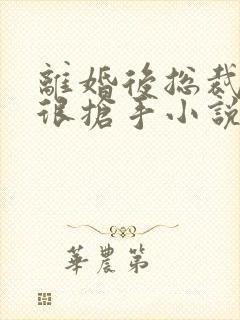 離婚後總裁
很搶手小說
華農第